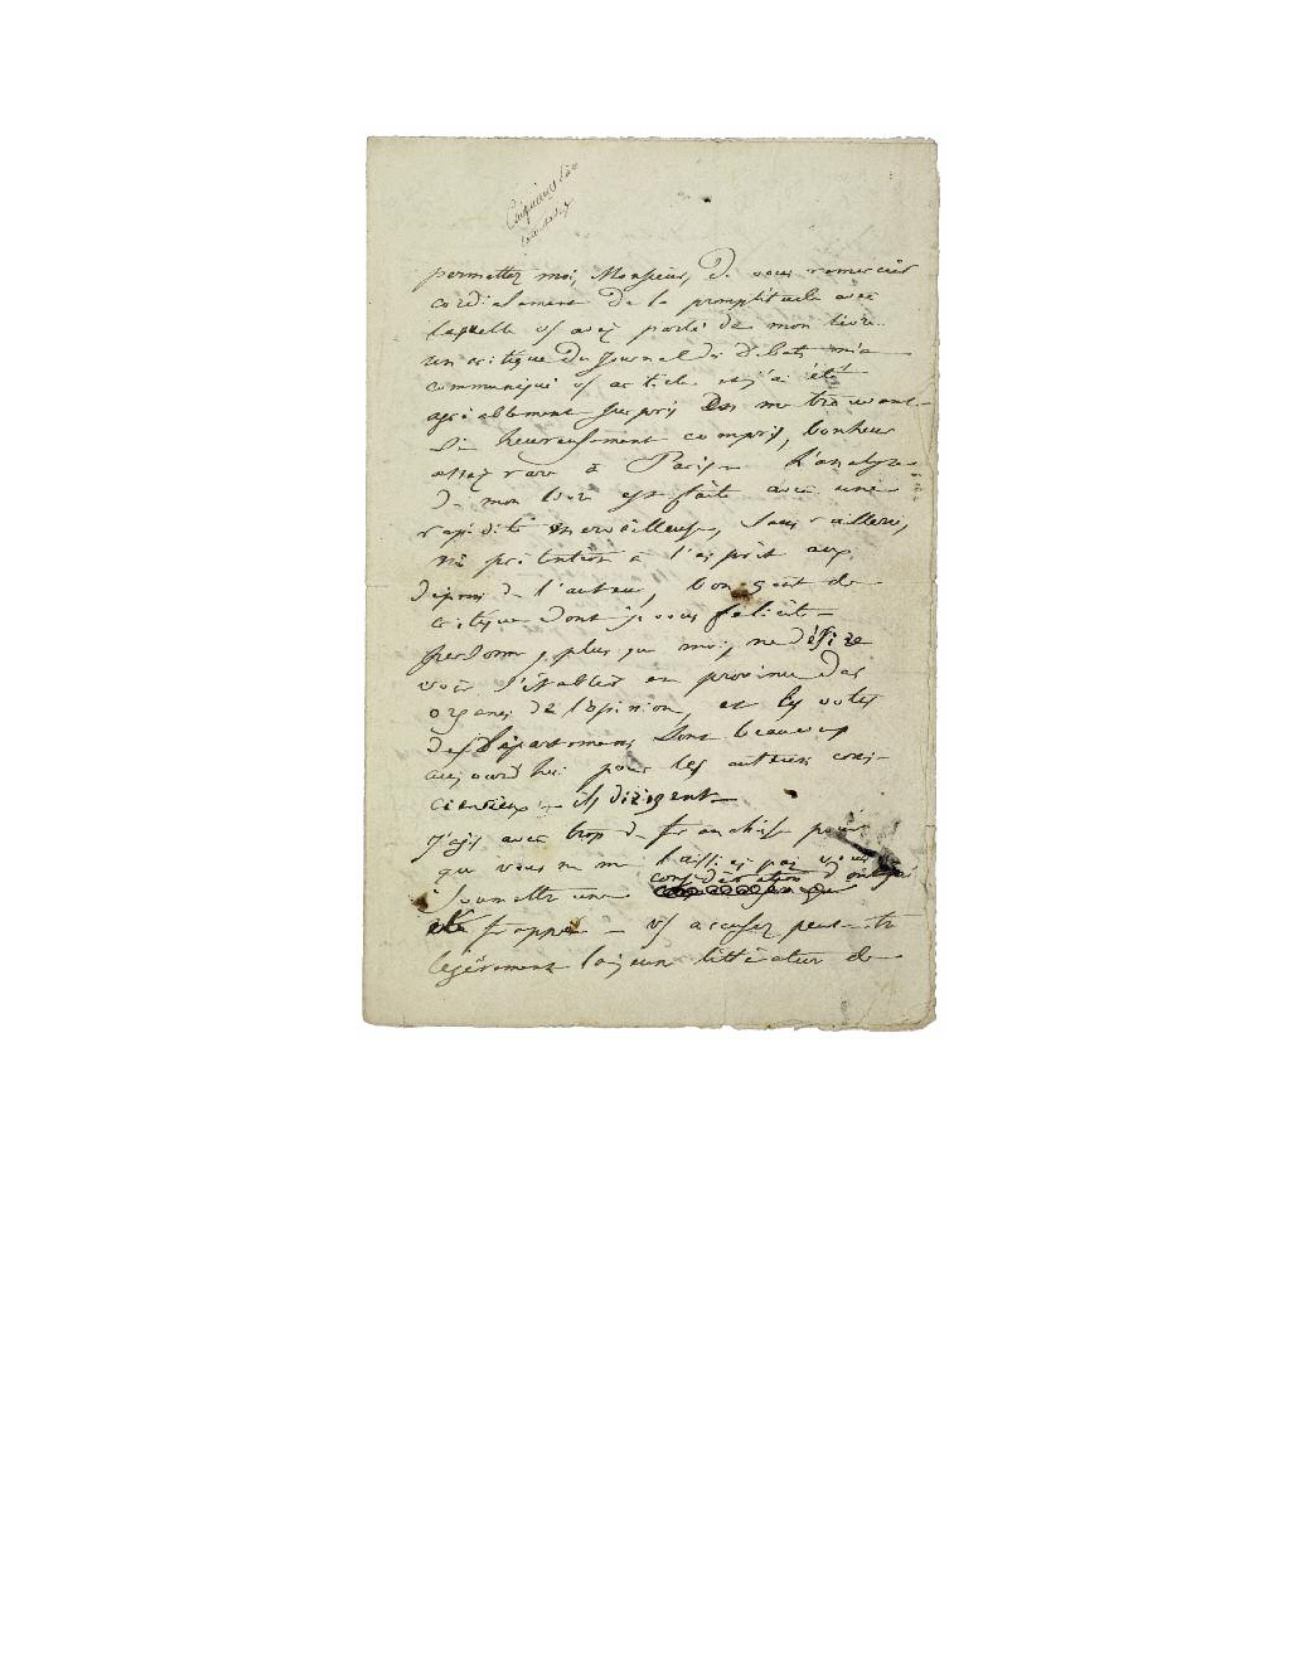 permettez moi, Monsieur, de vous remercier
cordialement de la promptitude avec
laquelle vs avez parlé de mon livre.
un critique du Journal des Débats m'a
communiqué vs article et j'ai été
agréablement surpris en me trouvant
si heureusement compris, bonheur
assez rare à Paris – L'analyse
de mon livre est faite avec une
rapidité merveilleuse, sans raillerie,
ni prétention à l'esprit aux
dépens de l'auteur, bon goût de
critique dont je vous félicite –
personne, plus que moi, ne désire
voir s'établir en province des
organes de l'opinion, et les votes
des départemens sont beaucoup
aujourd'hui pour les auteurs cons-
ciencieux – ils dirigent –
J'agis avec trop de franchise pour
que vous ne me laissiez pas vous
considération dont j'ai
Soumettre une
été frappé – vs accusez peut-être
légèrement la jeune littérature de